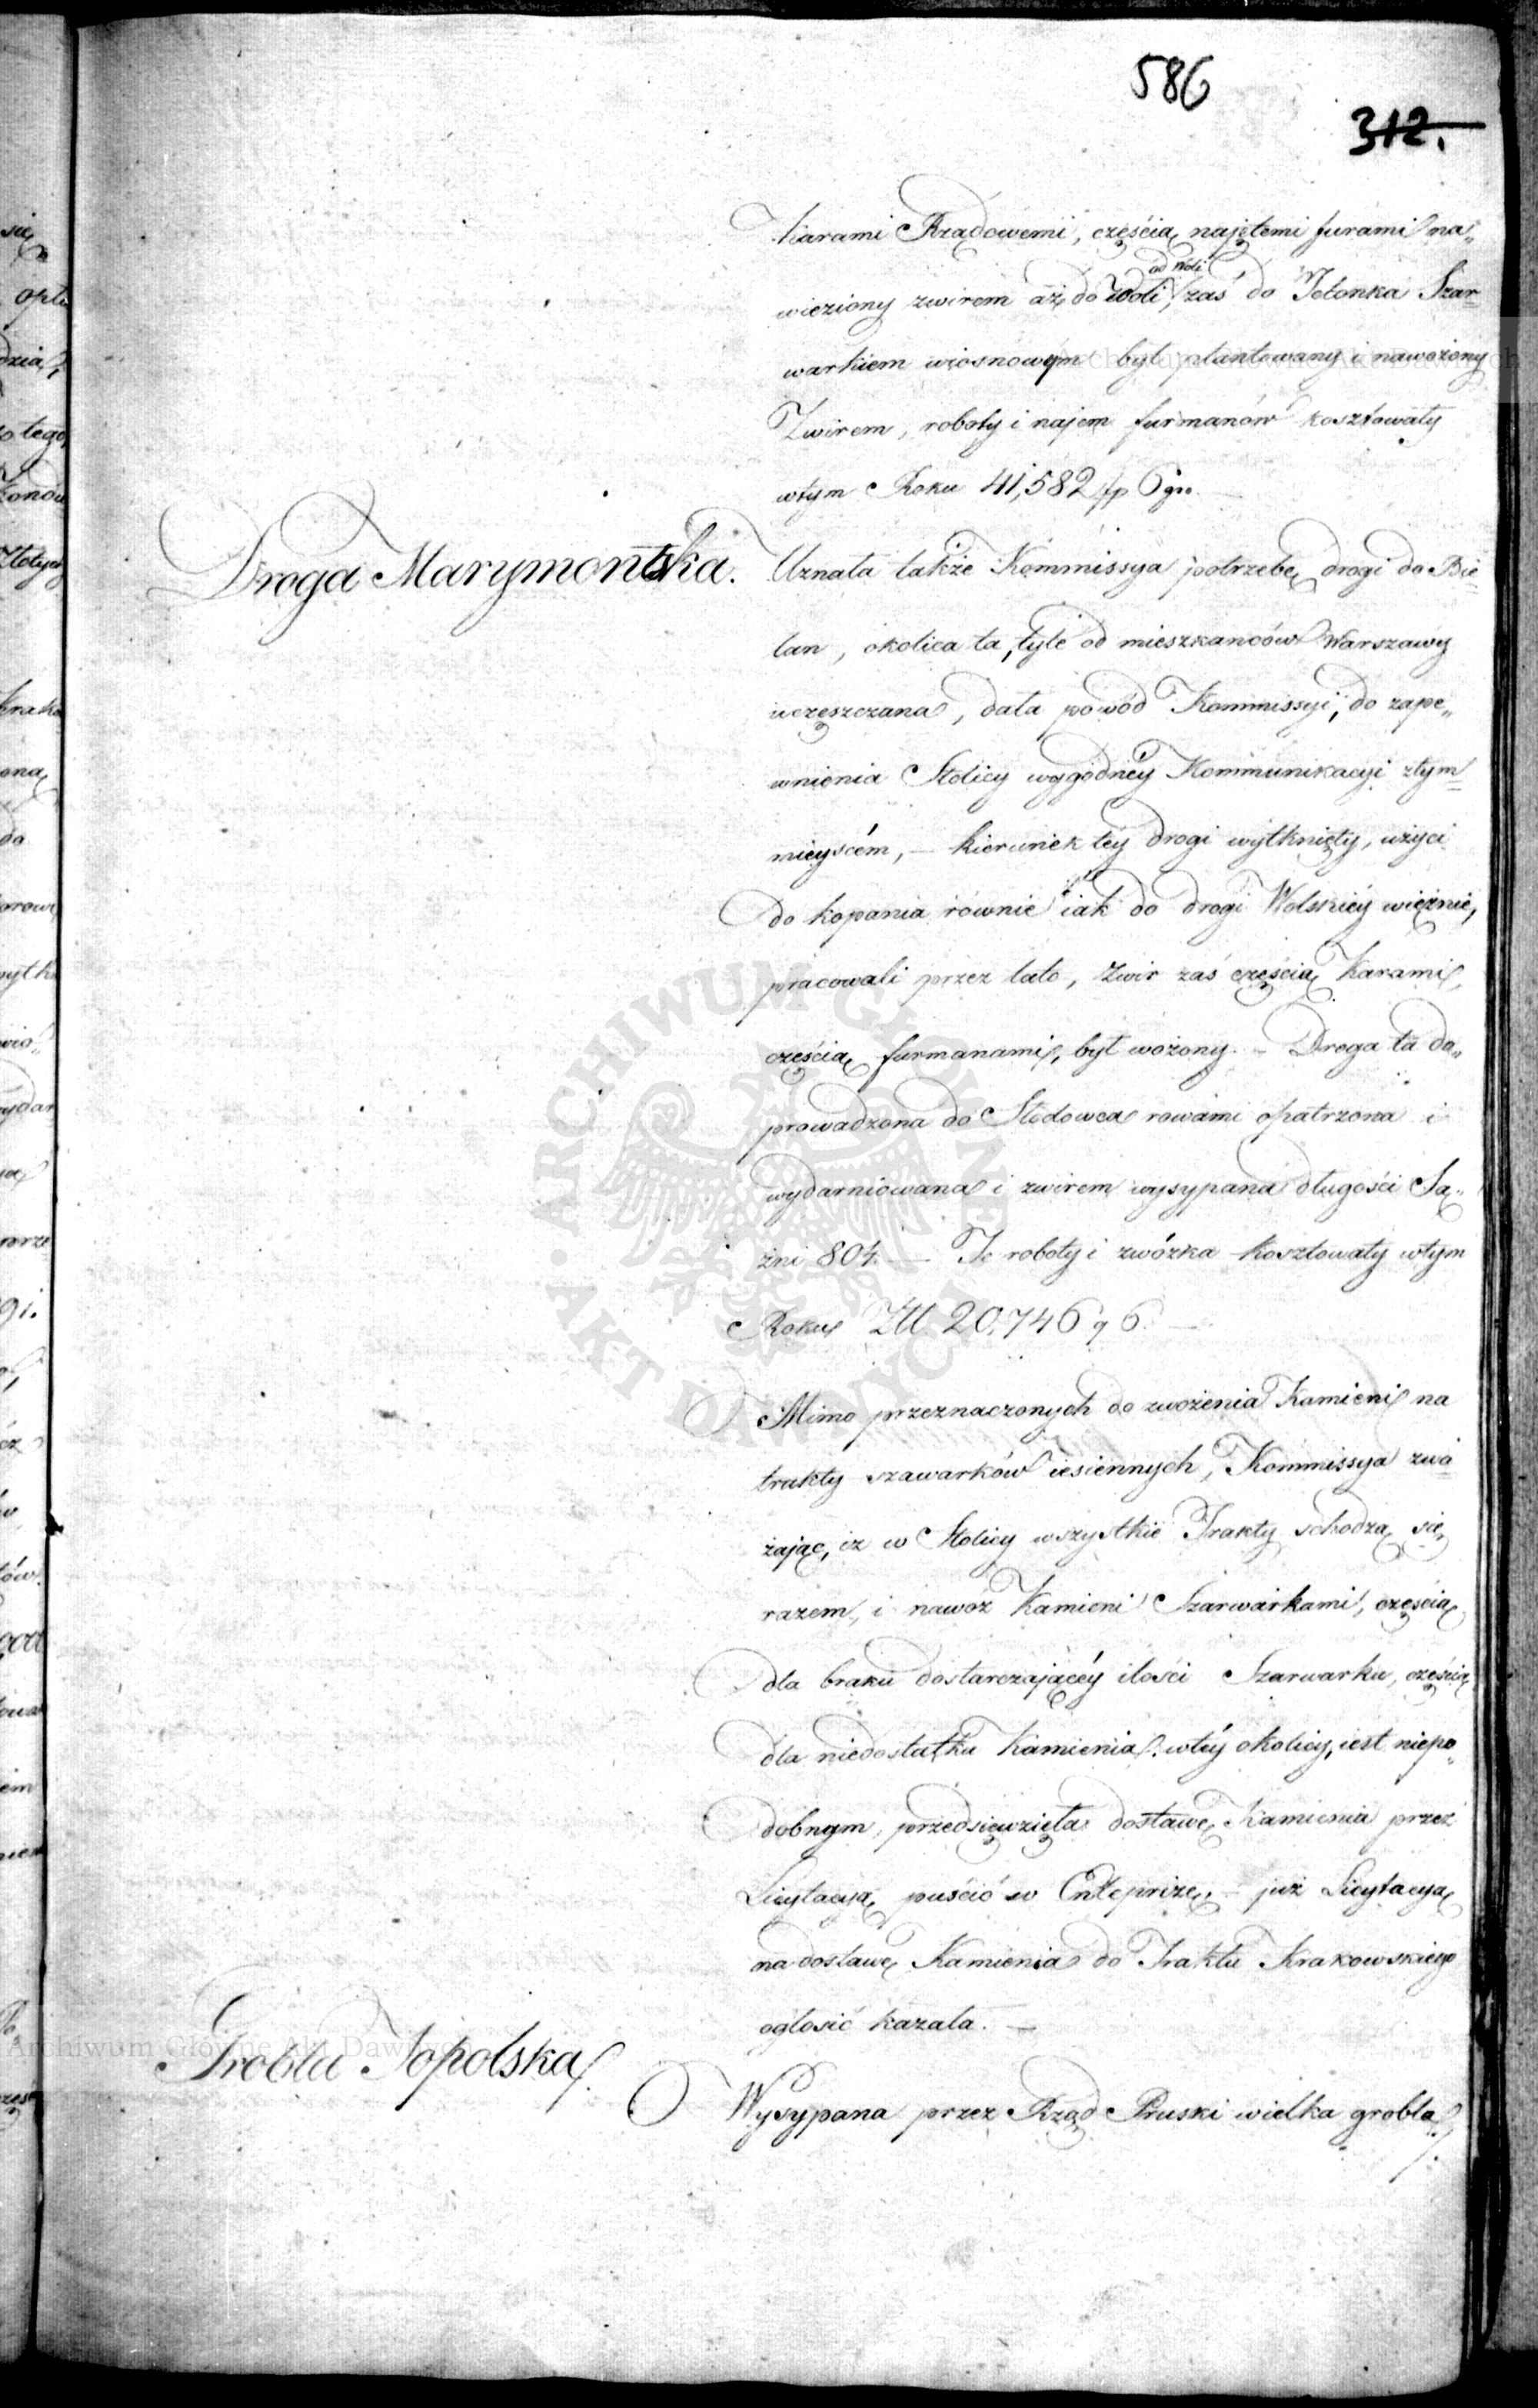 586
312.
karami Rządowemi, częścią najętemi furami na„
wieziony zwirem aż do Woli, od Woli zaś do Jelonka Szar=
warkiem wiosnowym był plantowany i nawożony
Zwirem, roboty i najem furmanów kosztowały
wtym Roku 41,582 fp 6 gr.
Droga Marymontska.
Uznała także Kommissya potrzebę drogi do Bie=
lan, okolica ta, tyle od mieszkanców Warszawy
uczęszczana, dała powód Kommissyi, do zape„
wnienia Stolicy wygodney Kommunikacyi ztym=
mieyscém, — kierunek téy drogi wytknięty, użyci
do kopania równie iak do drogi Wolskiéy więźnie,
pracowali przez lato, Zwir zaś częścią Karami,
częścią furmanami, był wożony. — Droga ta do„
prowadzona do Słodowca rowami opatrzona i
wydarniowana i zwirem wysypana długości Są„
żni 804. — Te roboty i zwózka kosztowały wtym
Roku Złł. 20,746 g 6. —
Mimo przeznaczonych do zwożenia Kamieni na
trakty szawarków iesiennych, Kommissya zwa=
żając, iz w Stolicy wszystkie Trakty schodzą się,
razem, i nawoz Kamieni Szarwarkami, częścią
dla braku dostarczającéy ilości Szarwarku, częścią
dla niedostatku Kamienia wtéy okolicy, iest niepo„
dobnym, przedsięwzięła dostawę Kamienia przez
Licytacyą puścić w Enteprizę, — już Licytacyą
na dostawę Kamienia do Traktu Krakowskiego
ogłosić kazała. —
Grobla Topolska.
Wysypana przez Rząd Pruski wielka grobla